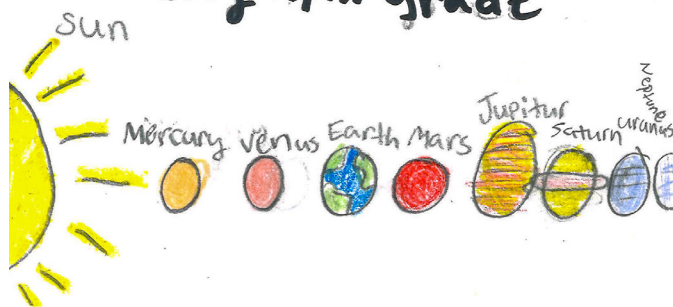 grade
sun
Mercury venus Earth Mars Jupitur Saturn uranus Neptune